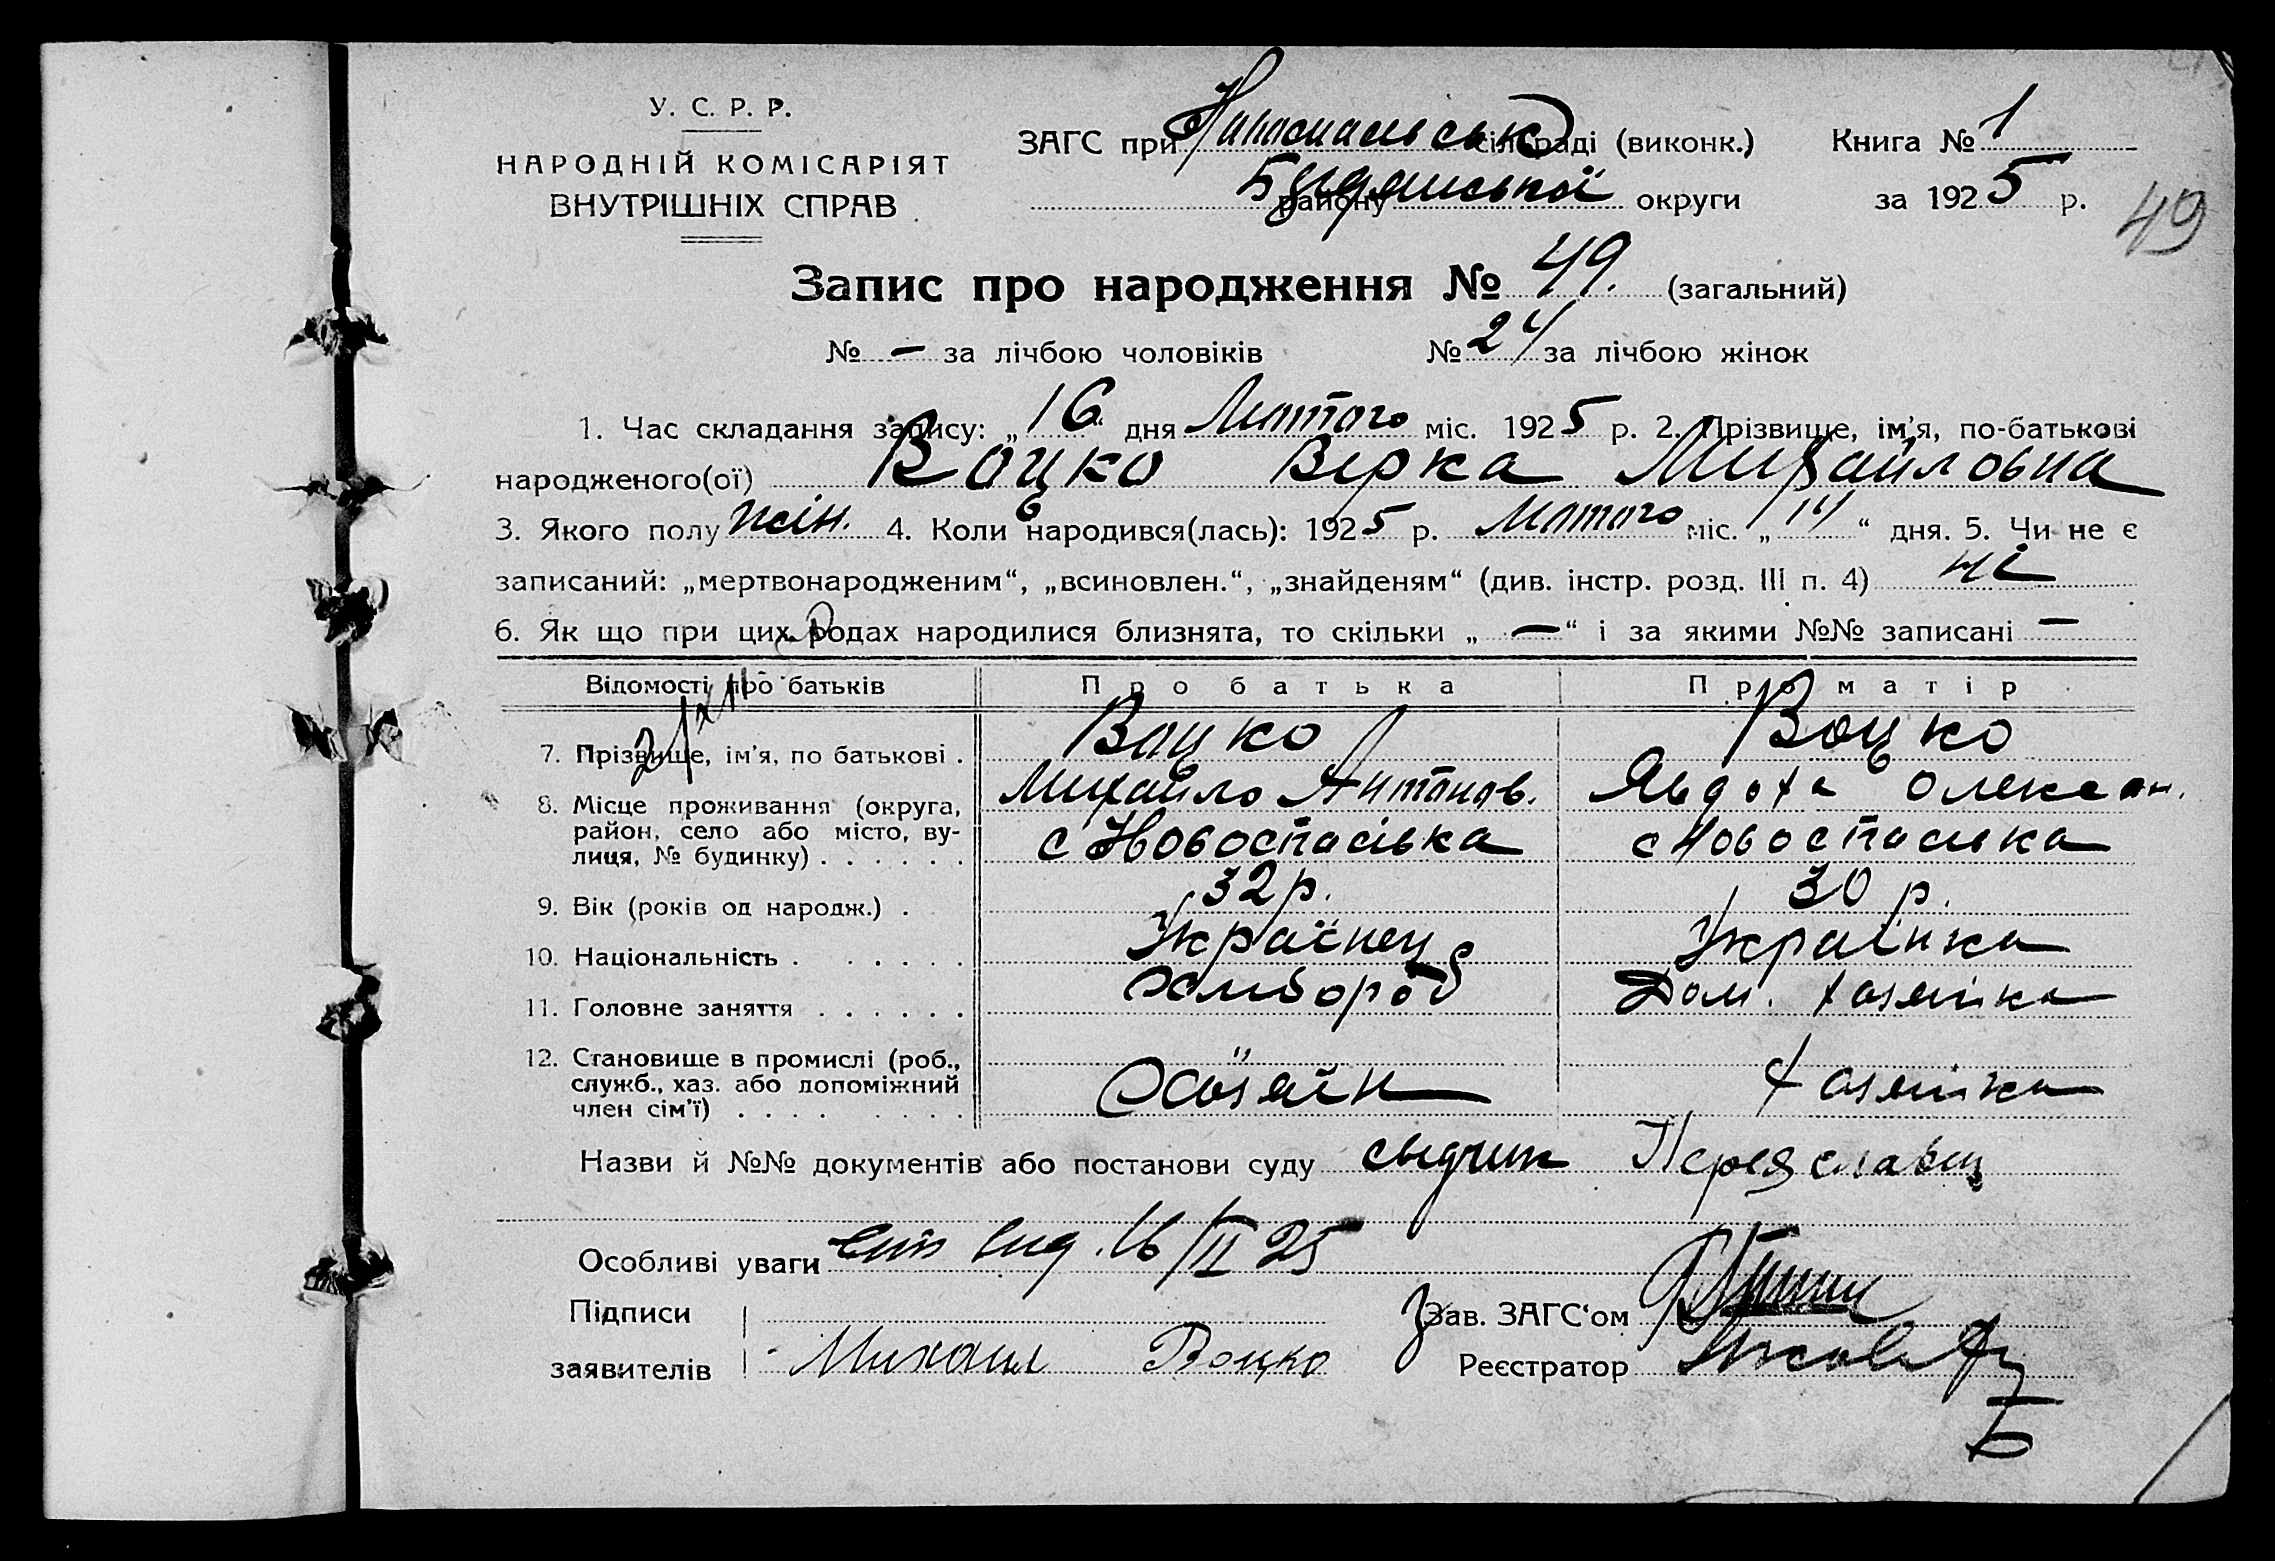 У. С. Р. Р.
НАРОДНІЙ КОМІСАРІЯТ
ВНУТРІШНІХ СПРАВ
ЗАГС при сільраді (виконк.) Книга № 1
району округи за 1925 р.
49
Запис про народження № 49. (загальний)
№ — за лічбою чоловіків № 24 за лічбою жінок
1. Час складання запису: „16“ дня Лютого міс. 1925 р. 2. Прізвище, ім'я, по-батькові
народженого(ої) Воцко Вірка Михайловна
3. Якого полу жін. 4. Коли народився(лась): 1925 р. Лютого міс. „14“ дня. 5. Чи не є
записаний: „мертвонародженим“, „всиновлен.“, „знайденям“ (див. інстр. розд. III п. 4) ні
6. Як що при цих родах народилися близнята, то скільки „—“ і за якими №№ записані —
Відомості про батьків Про батька Про матір
7. Прізвище, ім'я, по батькові . Воцко Воцко
Михайло Антонов. Явдоха Олексан.
8. Місце проживання (округа, район, село або місто, ву-лиця, № будинку) . . . . . . с Новоспасівка с Новоспасівка
9. Вік (років од народж.) . 32 р. 30 р.
10. Національність . . . . . . Українец Українка
11. Головне заняття . . . . . . Хлібороб Дом. хазяйка
12. Становище в промислі (роб., служб., хаз. або допоміжний член сім'ї) . . . . . . . . . Хазяїн хазяйка
Назви й №№ документів або постанови суду Переяславец
Особливі уваги вид. 16/II 25
Підписи Зав. ЗАГС‘ом
заявителів Михаил Воцко Реєстратор